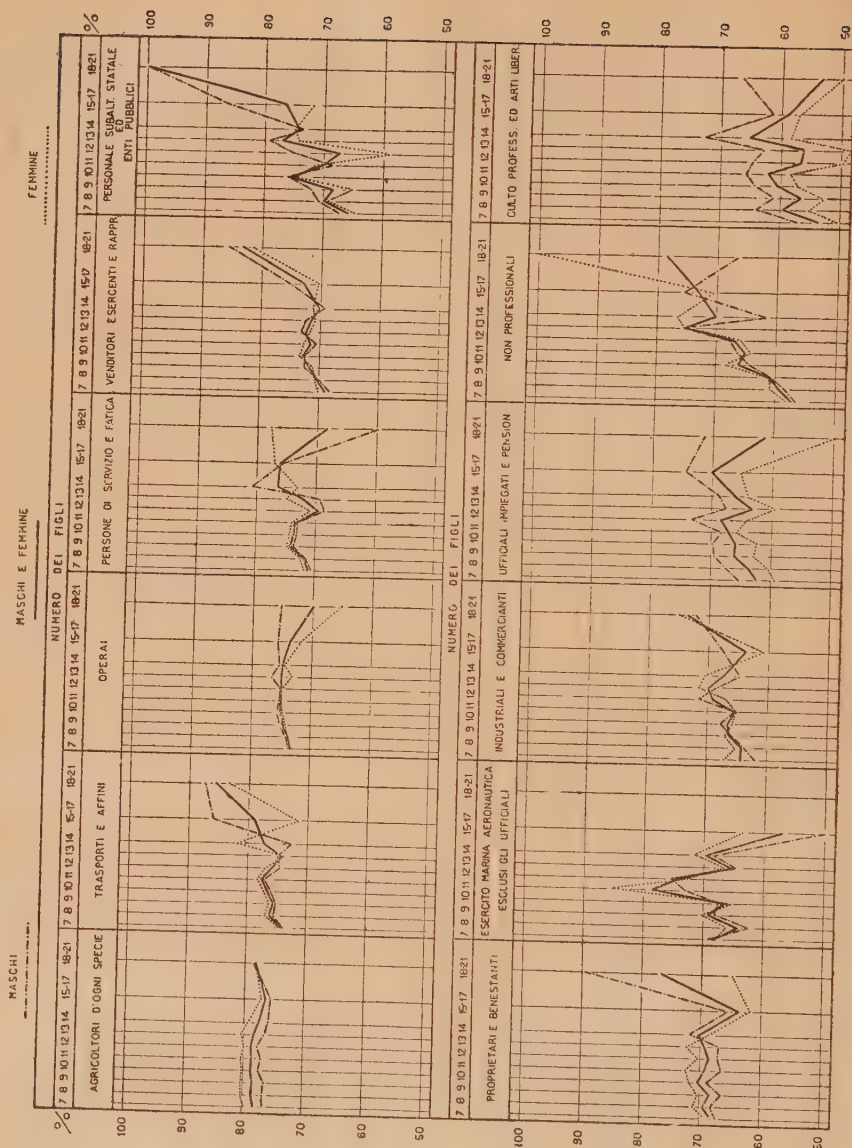 MASCHI MASCHI E FEMMINE FEMMINE
NUMERO DEI FIGLI
% 7 8 9 10 11 12 13 14 15-17 18-21 7 8 9 10 11 12 13 14 15-17 18-21 7 8 9 10 11 12 13 14 15-17 18-21 7 8 9 10 11 12 13 14 15-17 18-21 7 8 9 10 11 12 13 14 15-17 18-21 7 8 9 10 11 12 13 14 15-17 18-21 %
AGRICOLTORI D'OGNI SPECIE TRASPORTI E AFFINI OPERAI PERSONE DI SERVIZIO E FATICA VENDITORI ESERCENTI E RAPPR. PERSONALE SUBALT. STATALE
ED
ENTI PUBBLICI
100 100
90 90
80 80
70 70
60 60
50 50
NUMERO DEI FIGLI
7 8 9 10 11 12 13 14 15-17 18-21 7 8 9 10 11 12 13 14 15-17 18-21 7 8 9 10 11 12 13 14 15-17 18-21 7 8 9 10 11 12 13 14 15-17 18-21 7 8 9 10 11 12 13 14 15-17 18-21 7 8 9 10 11 12 13 14 15-17 18-21
PROPRIETARI E BENESTANTI ESERCITO MARINA AERONAUTICA INDUSTRIALI E COMMERCIANTI UFFICIALI IMPIEGATI E PENSION. NON PROFESSIONALI CULTO PROFESS. ED ARTI LIBER.
ESCLUSI GLI UFFICIALI
100 100
90 90
80 80
70 70
60 60
50 50